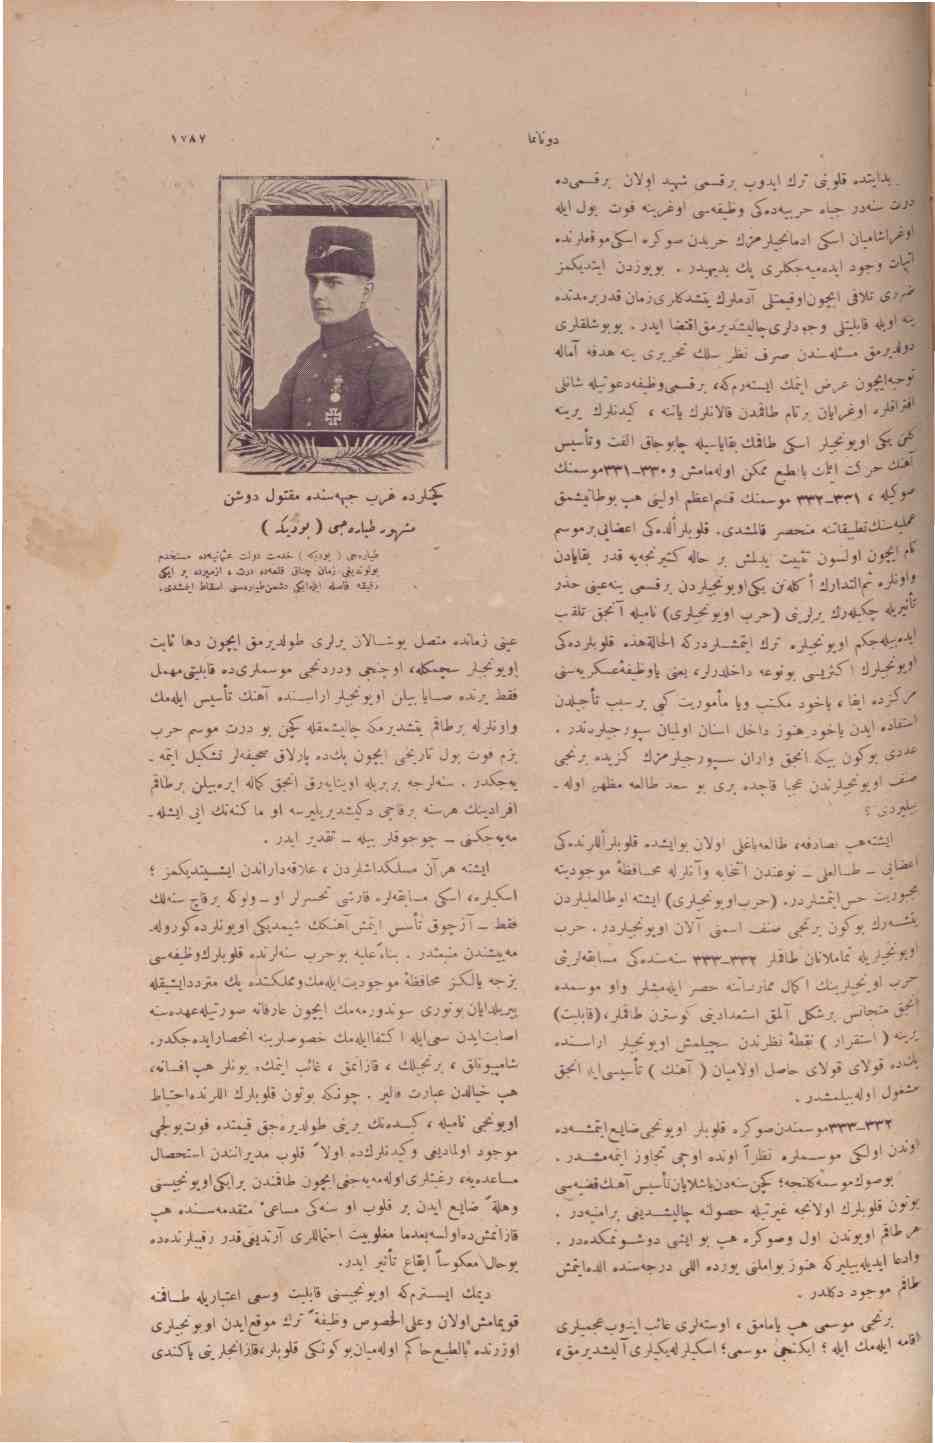 دونانما
١٧٨٧
بدايتده قلوبنى ترك ايدوب برقسمى شهيد اولان برقسمى ده
درت سنه در جباه حربيه ده كى وظيفه سى اوغرينه فوت بول ايله
اوغراشاميان اسكى ادمانجيلرمزك حربدن صوكره اسكى موقعلرنده
اثبات وجود ايده ميه جكلرى پك بديهيدر . بويوزدن ايتديكمز
ضررى تلافى ايچون اوقيمتلى آدملرك يتشدكلرى زمان قدر برمدتده
ينه اويله قابليتلى وجودلرى چاليشديرمق اقتضا ايدر . بوبوشلقلرى
دولديرمق مسئله سندن صرف نظر سلك تحريرى ينه هدفه آماله
توجيه ايچون عرض ايتمك ايسته رم كه، برقسمى وظيفه دعوتيله شانلى
افتراقلره اوغرايان برتام طاقمدن قالانلرك ياننه ، كيدنلرك يرينه
كلن يكى اويونجيلر اسكى طاقمك بقاياسيله چابوجاق الفت وتأسيس
آهنك حركت ايتمك بالطبع ممكن اوله مامش و ٣٣٠-٣٣١ موسمنك
صوكيله ، ٣٣١-٣٣٢ موسمنك قسم اعظم اولينى هپ بوطانيشمق
عمليه سنك تطبيقاتنه منحصر قالمشدى. قلوبلر ألده كى اعضايى برموسم
تام ايچون اولسون تثبيت ايدلمش بر حاله كتيرنجه يه قدر بقايادن
واونلره ضم التدارك أكله نن يكى اويونجيلردن برقسمى ينه عينى حذر
تأثيريله چكيله رك يرلرينى (حرب اويونجيلرى) ناميله آنجق تلقب
ايده بيله جكم اويونجيلره ترك ايتمشلردركه الحالة هذه قلوبلرده كى
اويونجيلرك اكثريسى بونوعه داخلدرلر، يعنى ياوظيفهٔ عسكريه سنى
مركزده ايفا ، ياخود مكتب ويا مأموريت كبى برسبب تأجيلدن
استفاده ايدن ياخود هنوز داخل اسنان اولميان سپورجيلردندر .
عددى بوكون بيكه آنجق واران سپورجيلرمزك كزيده برنجى
صنف اويونجيلرندن عجبا قاچده برى بو سعد طالعه مظهر اوله -
بيليردى ؟
ايشته هپ تصادفه، طالعه باغلى اولان بوايشده قلوبلر أللرنده كى
اعضايى - طالعلى - نوعندن انتخابه وآنلرله محافظهٔ موجوديته
مجبوريت حس ايتمشلردر. (حرب اويونجيلرى) ايشته اوطالعليلردن
يتشه رك بوكون برنجى صنف اسمنى آلان اويونجيلردر . حرب
اويونجيلريله تماملانان طاقملر ٣٣٢-٣٣٣ سنه سنده كى مسابقه لرينى
حرب اونجيلرينك اكمال ممارساتنه حصر ايله مشلر واو موسمده
آنجق متجانس برشكل آلمق استعدادينى كوسترن طاقملر، (قابليت)
يرينه ( استقرار ) نقطهٔ نظرندن سچيلمش اويونجيلر اراسنده
پك ده قولاى قولاى حاصل اولاميان ( آهنك ) تأسيسى ايله آنجق
مشغول اوله بيلمشدر .
٣٣٢-٣٣٣ موسمندن صوكره قلوبلر اويونجى ضايع ايتمشه ده
اوندن اولكى موسملره نظراً اونده اوچى تجاوز ايتمه مشدر .
بوصوك موسمه كلنجه؛ كچن سنه دن باشلايان تأسيس آهنك قضيه سى
بوتون قلوبلرك اولانجه غيرتيله حصولنه چاليشديغى برامنيه در .
هر طاقم اويوندن اول وصوكره هپ بو ايشى دوشونمكده در .
وادعا ايديله بيليركه هنوز بواملنى يوزده اللى درجه سنده الده ايتمش
طاقم موجود دكلدر .
برنجى موسمى هپ يامامق ، اوسته لرى غائب ايدوب عجميلرى
اقامه ايله مك ايله ؛ ايكنجى موسمى؛ اسكيلر له يكيلرى آليشديرمق،
كچنلرده غرب جبهه سنده مقتول دوشن
مشهور طياره جى ( بوديكه )
طياره جى ( بوديكه ) خدمت دولت عثمانيه ده مستخدم
بولونديغى زمان چناق قلعه ده درت ، ازميرده بر ايكى
دقيقه فاصله ايله ايكى دشمن طياره سنى اسقاط ايتمشدى.
عينى زمانده متصل بوشالان يرلرى طولديرمق ايچون دها ثابت
اويونجيلر سچمكله، اوچنجى ودردنجى موسملرى ده قابليتى مهمل
فقط يرنده صايا بيلن اويونجيلر اراسنده آهنك تأسيس ايله مك
واونلرله برطاقم يتشديرمكه چاليشمقله كچن بو درت موسم حرب
بزم فوت بول تاريخى ايچون پك ده پارلاق صحيفه لر تشكيل ايتمه -
يه جكدر . سنه لرجه بربريله اوينايه رق آنجق كماله ايره بيلن برطاقم
افرادينك هرسنه برقاچى دكيشديريليرسه او ماكنه نك ايى ايشله -
مه يه جكنى - چوجوقلر بيله - تقدير ايدر .
ايشته هر آن مسلكداشلردن ، علاقه داراندن ايشيتديكمز ؛
اسكيلره، اسكى مسابقه لره قارشى تحسرلر او - ولوكه برقاچ سنه لك
فقط - آزچوق تأسس ايتمش آهنكك شيمديكى اويونلرده كوروله -
مه ييشندن منبعثدر . بناءً عليه بوحرب سنه لرنده قلوبلرك وظيفه سى
بزجه يالكز محافظهٔ موجوديت ايله مك ومملكتده پك متردد ايشيقله
پيريلدايان بونورى سوندورمه مك ايچون عارفانه صورتيله عهده سنه
اصابت ايدن سعى ايله اكتفا ايله مك خصوصلرينه انحصار ايده جكدر.
شامپيونلق ، برنجيلك ، قازانمق ، غائب ايتمك، بونلر هپ افسانه،
هپ خيالدن عبارت قالير . چونكه بوتون قلوبلرك اللرنده احتياط
اويونجى ناميله ، كيده نك يرينى طولديره جق قيمتده فوت بولجى
موجود اولماديغى وكيدنلرك ده اولاً قلوب مديرانندن استحصال
مساعده يه، رغبتلرى اوله مه يه جغى ايچون طاقمندن برايكى اويونجيسنى
وهلةً ضايع ايدن بر قلوب او سنه كى مساعى متقدمه سنده هپ
قازانمش ده اولسه بعدما مغلوبيت احتماللرى آرتديغى قدر رقيبلرنده ده
بوحال معكوساً ايقاع تأثير ايدر.
ديمك ايسترم كه اويونجيسنى قابليت وسعى اعتباريله طاقمنه
قويمامش اولان وعلى الخصوص وظيفةً ترك موقع ايدن اويونجيلرى
اوزرنده بالطبع حاكم اوله ميان بوكونكى قلوبلر، قازانجلرينى ياكندى